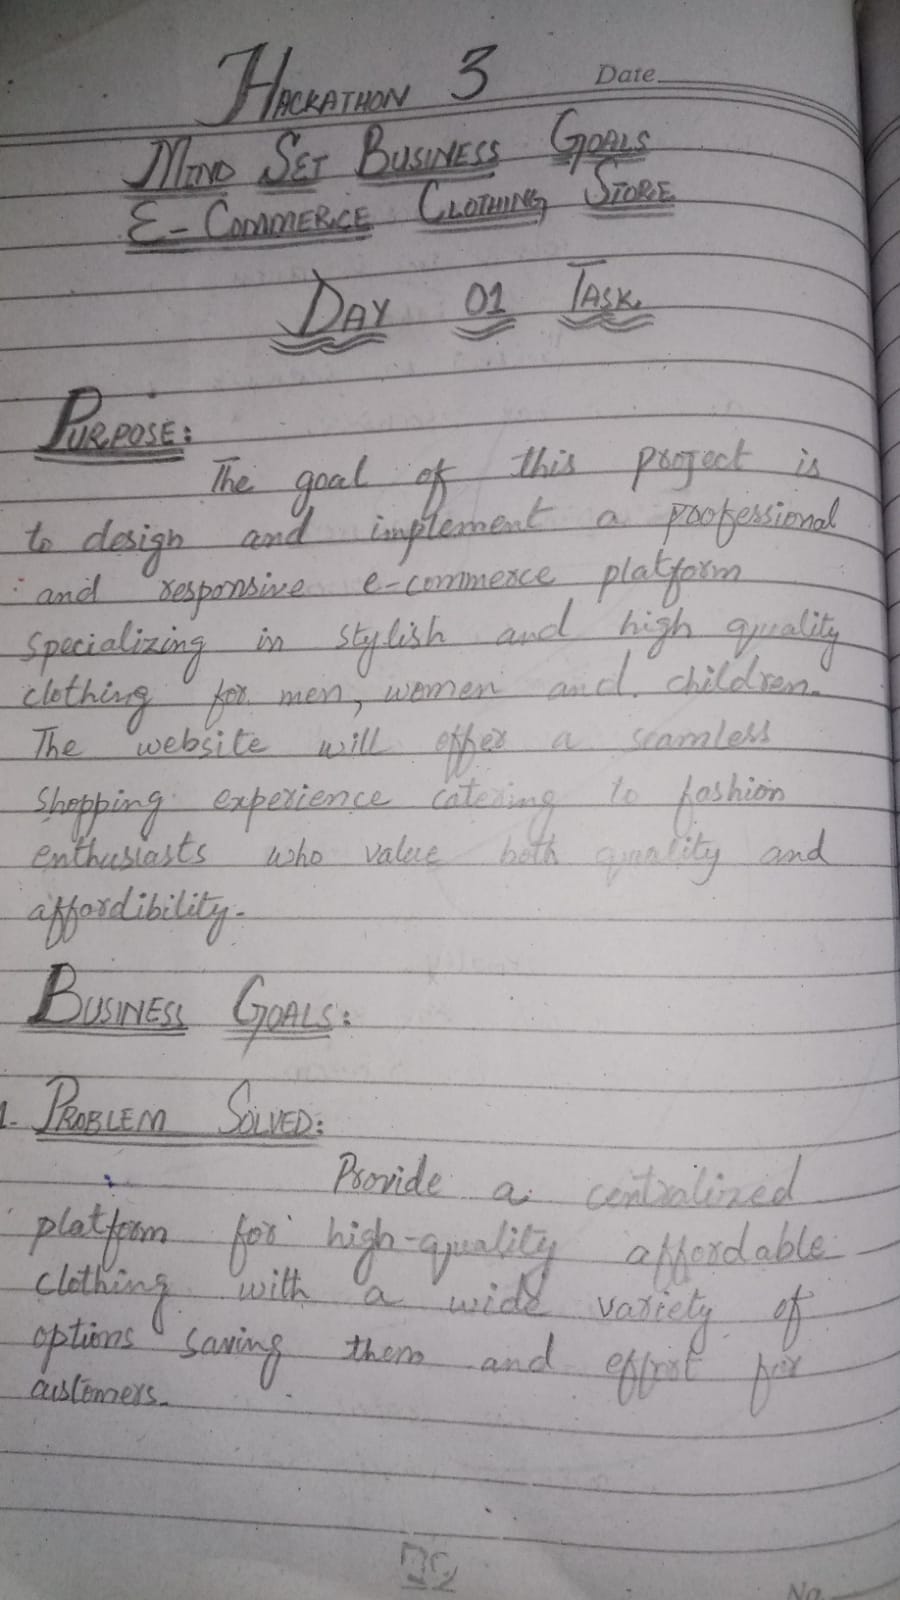 HACKATHON 3 Date
MIND SET BUSINESS GOALS
E-COMMERCE CLOTHING STORE
DAY 01 TASK
PURPOSE:
The goal of this project is
to design and implement a professional
and responsive e-commerce platform
specializing in stylish and high quality
clothing for men, women and children.
The website will offer a seamless
shopping experience catering to fashion
enthusiasts who value both quality and
affordibility.
BUSINESS GOALS:
1. PROBLEM SOLVED:
Provide a centralized
platform for high-quality affordable
clothing with a wide variety of
options saving them and effort for
customers.
No.